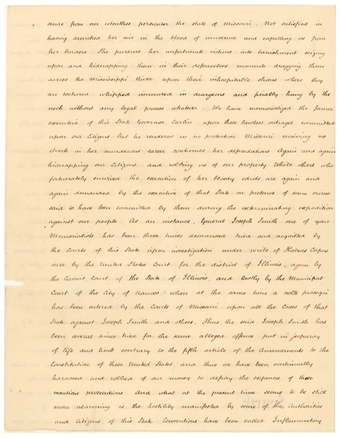 acies from our relentless persecutor the State of Missouri. Not satisfied in
having drenched her soil in the blood of innocence and expelling us from
her borders. She pursues her unfortunate victims into banishment seizing
upon and kidnapping them in their defenceless moments dragging them
across the Mississippi river upon their inhospitable shores where they
are tortured whipped immured in dungeons and finally hung by the
neck without any legal process whatever. We have memorialized the former
executive of this State Governor Carlin upon these lawless outrages committed
upon our Citizens but he rendered us no protection. Missouri receiving no
check in her murderous career continues her depredations Again and again
kidnapping our Citizens, and robbing us of our property While others who
fortunately survived the execution of her bloody edicts are again and
again demanded by the executive of that State on pretence of some crime
said to have been committed by them during the exterminating expedition
against our people. As an instance, General Joseph Smith one of your
Memorialists has been three times demanded tried and acquitted by
the Courts of this State upon investigation under writs of Habeas Corpus
once by the United States Court for the district of Illinois, again by
the Circuit Court of the State of Illinois and lastly by the Municipal
Court of the City of Nauvoo: when at the same time a nolle prosequi
has been entered by the Courts of Missouri upon all the Cases of that
State against Joseph Smith and others. Thus the said Joseph Smith has
been several times tried for the same alleged offence put in jeopardy
of life and limb contrary to the fifth article of the Amendments to the
Constitution of these United States and thus we have been continually
harassed and robbed of our money to defray the expenses of these
vexatious prosecutions And what at the present time seems to be still
more alarming is the hostility manifested by some of the Authorities
and Citizens of this State. Conventions have been called Inflammatory